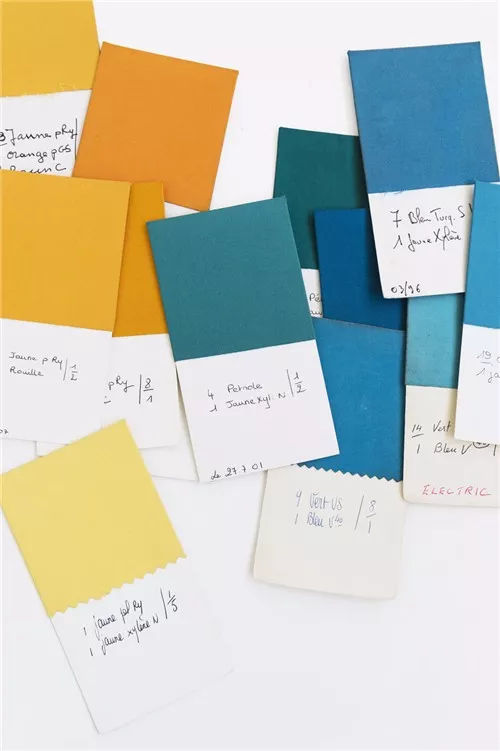 Jaune p Ry
orange p GS
7 Bleu Turq. S
1 jaune Xylène
03/96
Jaune p Ry | 1
Rouille | 2
p Ry | 8
1
4 Pétrole | 1
1 Jaune Xyl. N | 2
Le 27.7 01
14 Vert
1 Bleu V
ELECTRIC
19
1 ja
9 Vert VS | 8
1 Bleu V | 1
1 jaune
1 jaune xylène N